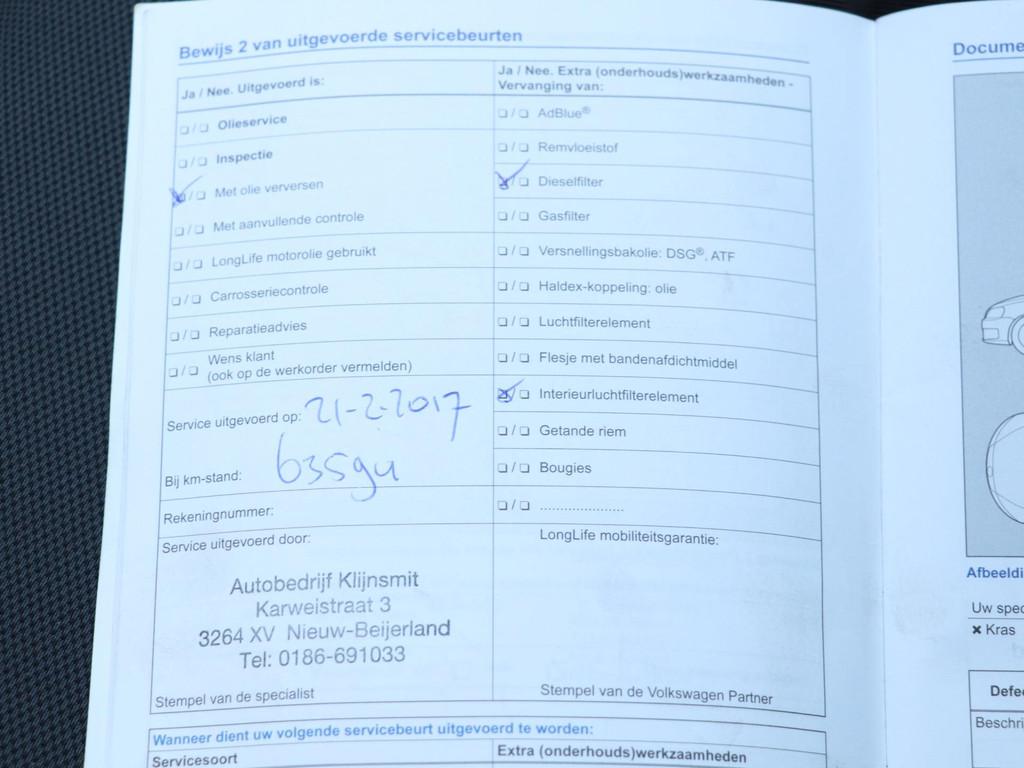 Bewijs 2 van uitgevoerde servicebeurten
Ja / Nee. Uitgevoerd is:
❏ / ❏ Olieservice
❏ / ❏ Inspectie
❏ / ❏ Met olie verversen
❏ / ❏ Met aanvullende controle
❏ / ❏ LongLife motorolie gebruikt
❏ / ❏ Carrosseriecontrole
❏ / ❏ Reparatieadvies
❏ / ❏ Wens klant
(ook op de werkorder vermelden)
Service uitgevoerd op: 21-2-2017
Bij km-stand:
Rekeningnummer:
Service uitgevoerd door:
Autobedrijf Klijnsmit
Karweistraat 3
3264 XV Nieuw-Beijerland
Tel: 0186-691033
Stempel van de specialist
Ja / Nee. Extra (onderhouds)werkzaamheden -
Vervanging van:
❏ / ❏ AdBlue®
❏ / ❏ Remvloeistof
❏ / ❏ Dieselfilter
❏ / ❏ Gasfilter
❏ / ❏ Versnellingsbakolie: DSG®, ATF
❏ / ❏ Haldex-koppeling: olie
❏ / ❏ Luchtfilterelement
❏ / ❏ Flesje met bandenafdichtmiddel
❏ / ❏ Interieurluchtfilterelement
❏ / ❏ Getande riem
❏ / ❏ Bougies
❏ / ❏ .....................
LongLife mobiliteitsgarantie:
Stempel van de Volkswagen Partner
Wanneer dient uw volgende servicebeurt uitgevoerd te worden:
Servicesoort
Extra (onderhouds)werkzaamheden
Docume
Afbeeldi
Uw spec
✖ Kras
Defe
Beschri